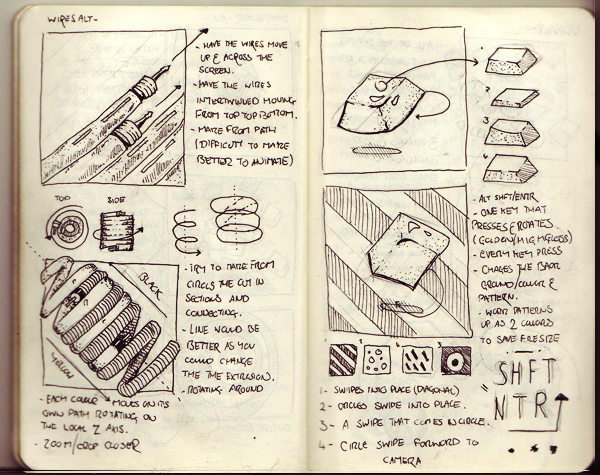 WIRES ALT -
- HAVE THE WIRES MOVE
UP & ACROSS THE
SCREEN.
- HAVE THE WIRES
INTERTWINED MOVING
FROM TOP TOP BOTTOM.
- MAKE FROM PATH
(DIFFICULT TO MAKE
BETTER TO ANIMATE)
TOP
SIDE
BLACK
YELLOW
- TRY TO MAKE FROM
CIRCLS THE CUT IN
SECTIONS AND
CONNECTING.
- LINE WOULD BE
BETTER AS YOU
COULD CHANGE
THE THE EXTRUSION.
- ROTATING AROUND
- EACH COLOUR MOVES ON ITS
OWN PATH ROTATING ON
THE LOCAL Z AXIS.
- ZOOM/CROP CLOSER
1
2
3
4
- ALT SHFT/ENTR
- ONE KEY THAT
PRESSES & ROTATES
(GOLDEN/HIGH GLOSS)
- EVERY KEY PRESS
- CHAGES THE BACK
GROUND/COLOUR &
PATTERN.
- WORK PATTERNS
UP AS 2 COLOURS
TO SAVE FILESIZE
1
2
3
1 - SWIPES INTO PLACE (DIAGONAL)
2 - CIRCLES SWIPE INTO PLACE.
3 - A SWIPE THAT COMES IN CIRCLE.
4 - CIRCLE SWIPE FORWARD TO
CAMERA
SHFT
NTR